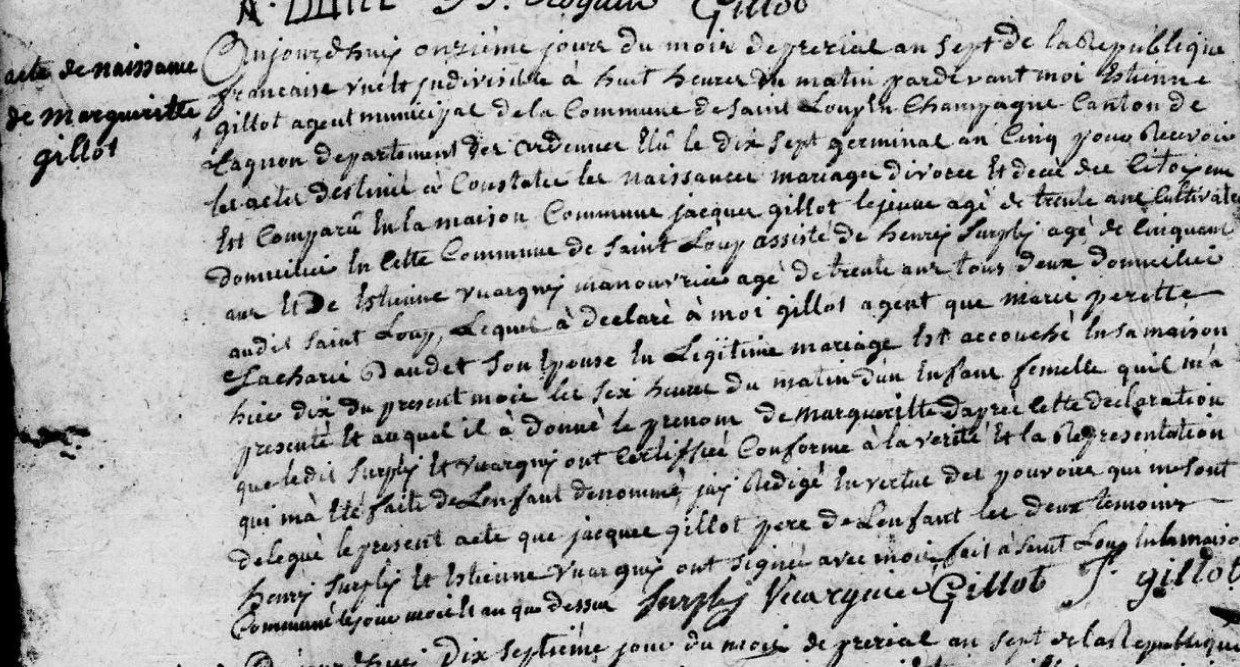 Gillot
acte de naissance
de Marqueritte
gillot
Aujourdhuij onzième jour du mois de prerial an sept de la Republique
francaise une et indivisible à huit heures du matin pardevant moi Estienne
gillot agent municipal de la Commune de Saint Loup En Champagne Canton de
departement des ardennes Elû le dix sept germinal an Cinq pour Recevoir
les actes destiné à Constater les naissances mariages divorce Et decè des Citoijens
Est Comparû En la maison Commune jacques gillot le jeune agé de trente ans Cultivateur
domicilié En Cette Commune de Saint Loup assisté de henrij Surplij agé de Cinquante
ans Et De Estienne Vuarquij manouvrier agé de trente ans tous deux domicilié
audit Saint Loup, Lequel à declarè à moi gillot agent que marie perette
Zacharie Daudet Son Epouse En Legitime mariage Est accouché En sa maison
hier dix du present mois les six heures du matin dun Enfant femelle quil m'a
presentè Et auquel il à donnè le prenom de Marqueritte daprès Cette declaration
que ledit Surplij Et Vuarquij ont Certiffiée Conforme à la verité Et la Representation
qui mà Etè faite de Lenfant denommè, jaij Redigé En vertue des pouvoirs qui me sont
deleguè le present acte que jacques gillot pere de Lenfant les deux temoins
henrij Surplij Et Estienne Vuarquij ont Signée avec moi, fait à Saint Loup En la maison
Commune les jour mois Et an que dessus Surplij Vuarquie Gillot J. gillot
dix septième jour du mois de prerial an sept de la Republique